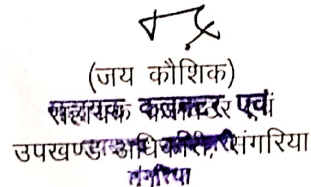 (जय कौशिक)
सहायक कलक्टर एवं
उपखण्ड अधिकारी, संगरिया
संगरिया